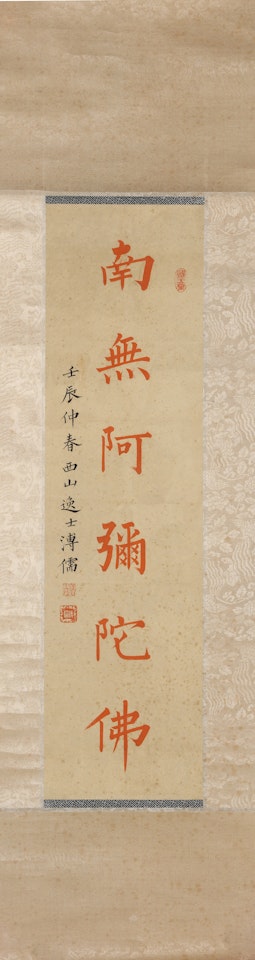 南無阿彌陀佛
壬辰仲春西山逸士溥儒